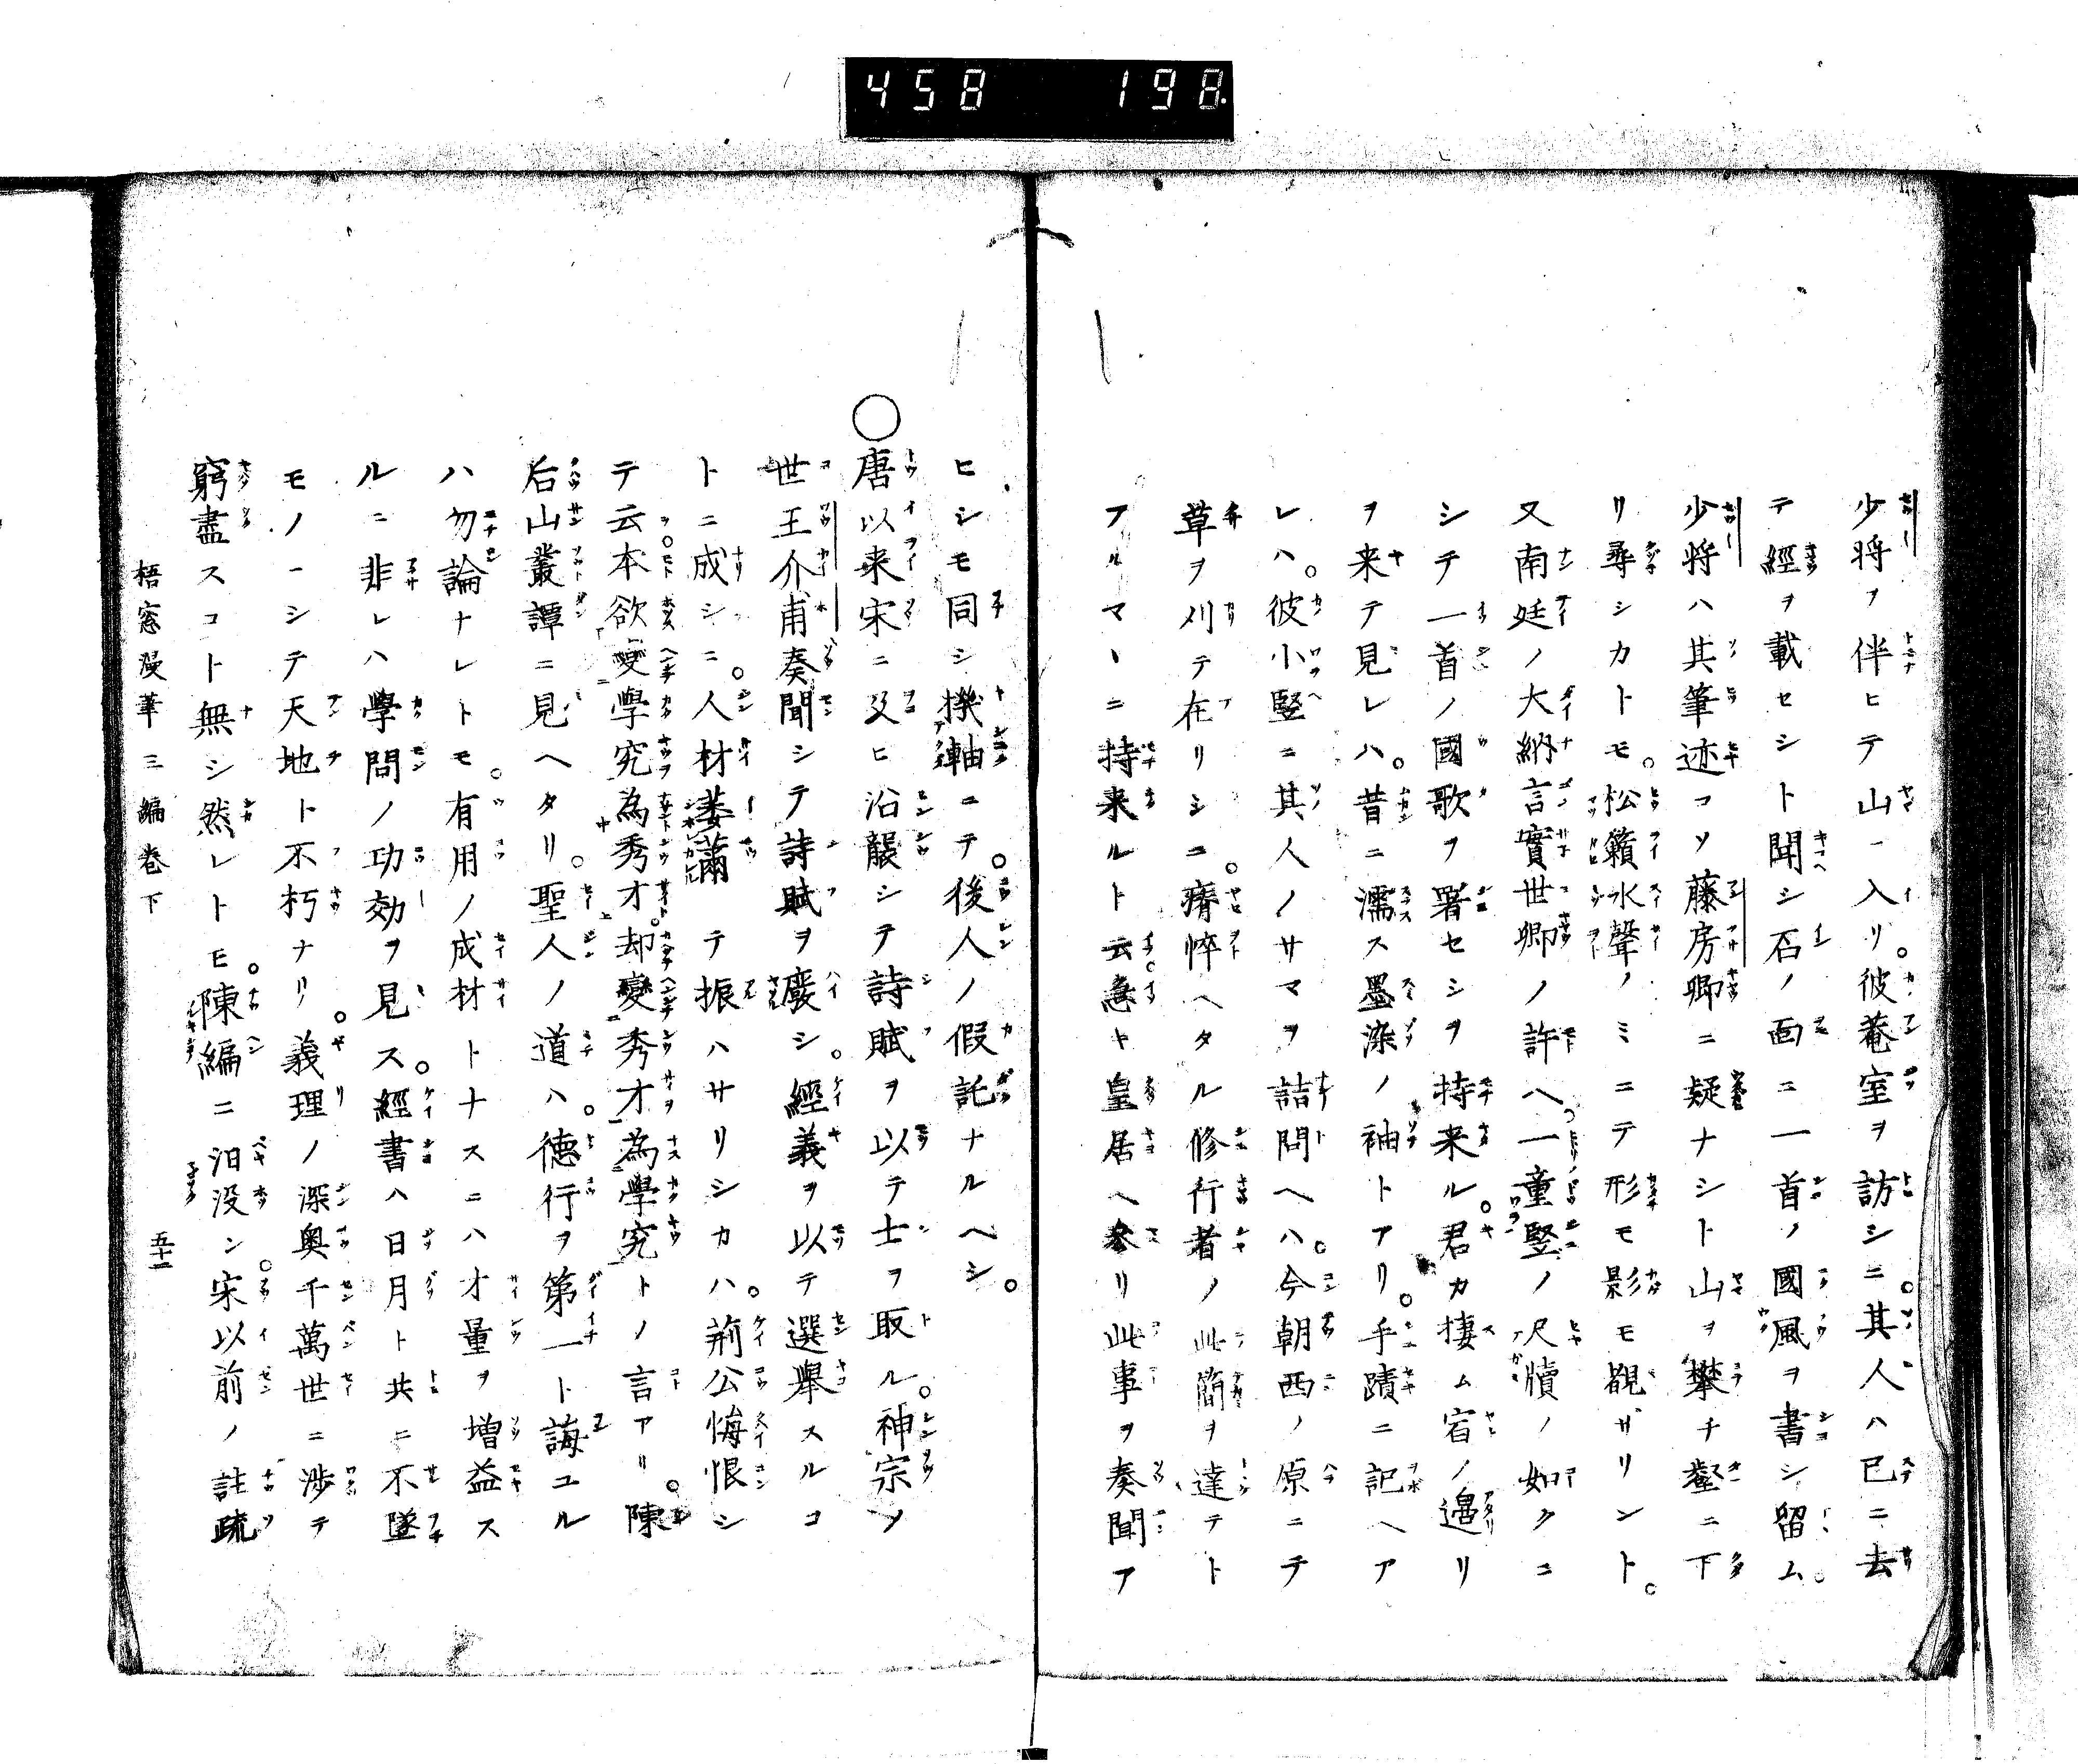 458 198
少将ヲ伴ヒテ山ニ入リ。彼菴室ヲ訪シニ。其人ハ已ニ去
テ經ヲ載セシト聞シ石ノ面ニ一首ノ國風ヲ書シ留ム。
少将ハ其筆迹コソ藤房卿ニ疑ナシト山ヲ攀チ壑ニ下
リ尋シカトモ。松籟水聲ノミニテ形モ影モ覩ザリント。
又南廷ノ大納言實世卿ノ許ヘ。一童竪ノ尺牘ノ如クニ
シテ一首ノ國歌ヲ署セシヲ持来ル。君カ棲ム宿ノ邉リ
ヲ来テ見レハ。昔ニ濡ス墨染ノ袖トアリ。手蹟ニ記ヘア
レハ。彼小竪ニ其人ノサマヲ詰問ヘハ。今朝西ノ原ニテ
草ヲ刈テ在リシニ。瘠悴ヘタル修行者ノ此簡ヲ達テト
フルマヽニ持来ルト云。急キ皇居ヘ参リ此事ヲ奏聞ア
ヒシモ同シ機軸ニテ。後人ノ假託ナルヘシ。
〇唐以来宋ニ及ヒ沿襲シテ詩賦ヲ以テ士ヲ取ル。神宗ノ
世王介甫奏聞シテ詩賦ヲ廢シ。經義ヲ以テ選舉スルコ
トニ成シニ。人材萎薾テ振ハサリシカハ。荊公悔恨シ
テ云本欲變學究為秀才。却變秀才為學究トノ言アリ。陳
后山叢譚ニ見ヘタリ。聖人ノ道ハ。徳行ヲ第一ト誨ユル
ハ勿論ナレトモ。有用ノ成材トナスニハオ量ヲ増益ス
ルニ非レハ學問ノ功効ヲ見ス。經書ハ日月ト共ニ不墜
モノニシテ天地ト不朽ナリ。義理ノ深奥千萬世ニ渉テ
窮盡スコト無シ然レトモ。陳編ニ汨没ン。宋以前ノ註疏
梧窓漫筆三編巻下 五十一